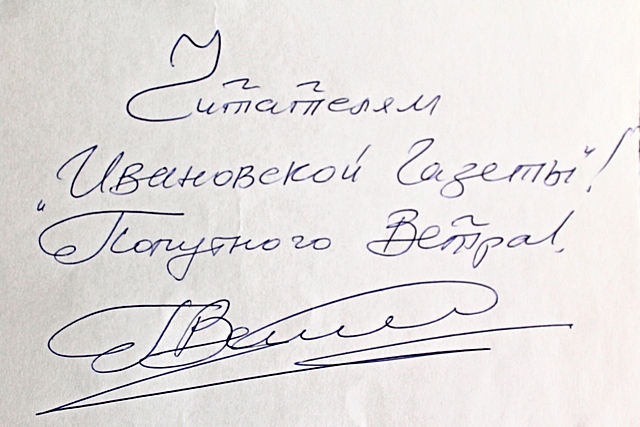 Читателям
"Ивановской Газеты"!
Попутного Ветра!